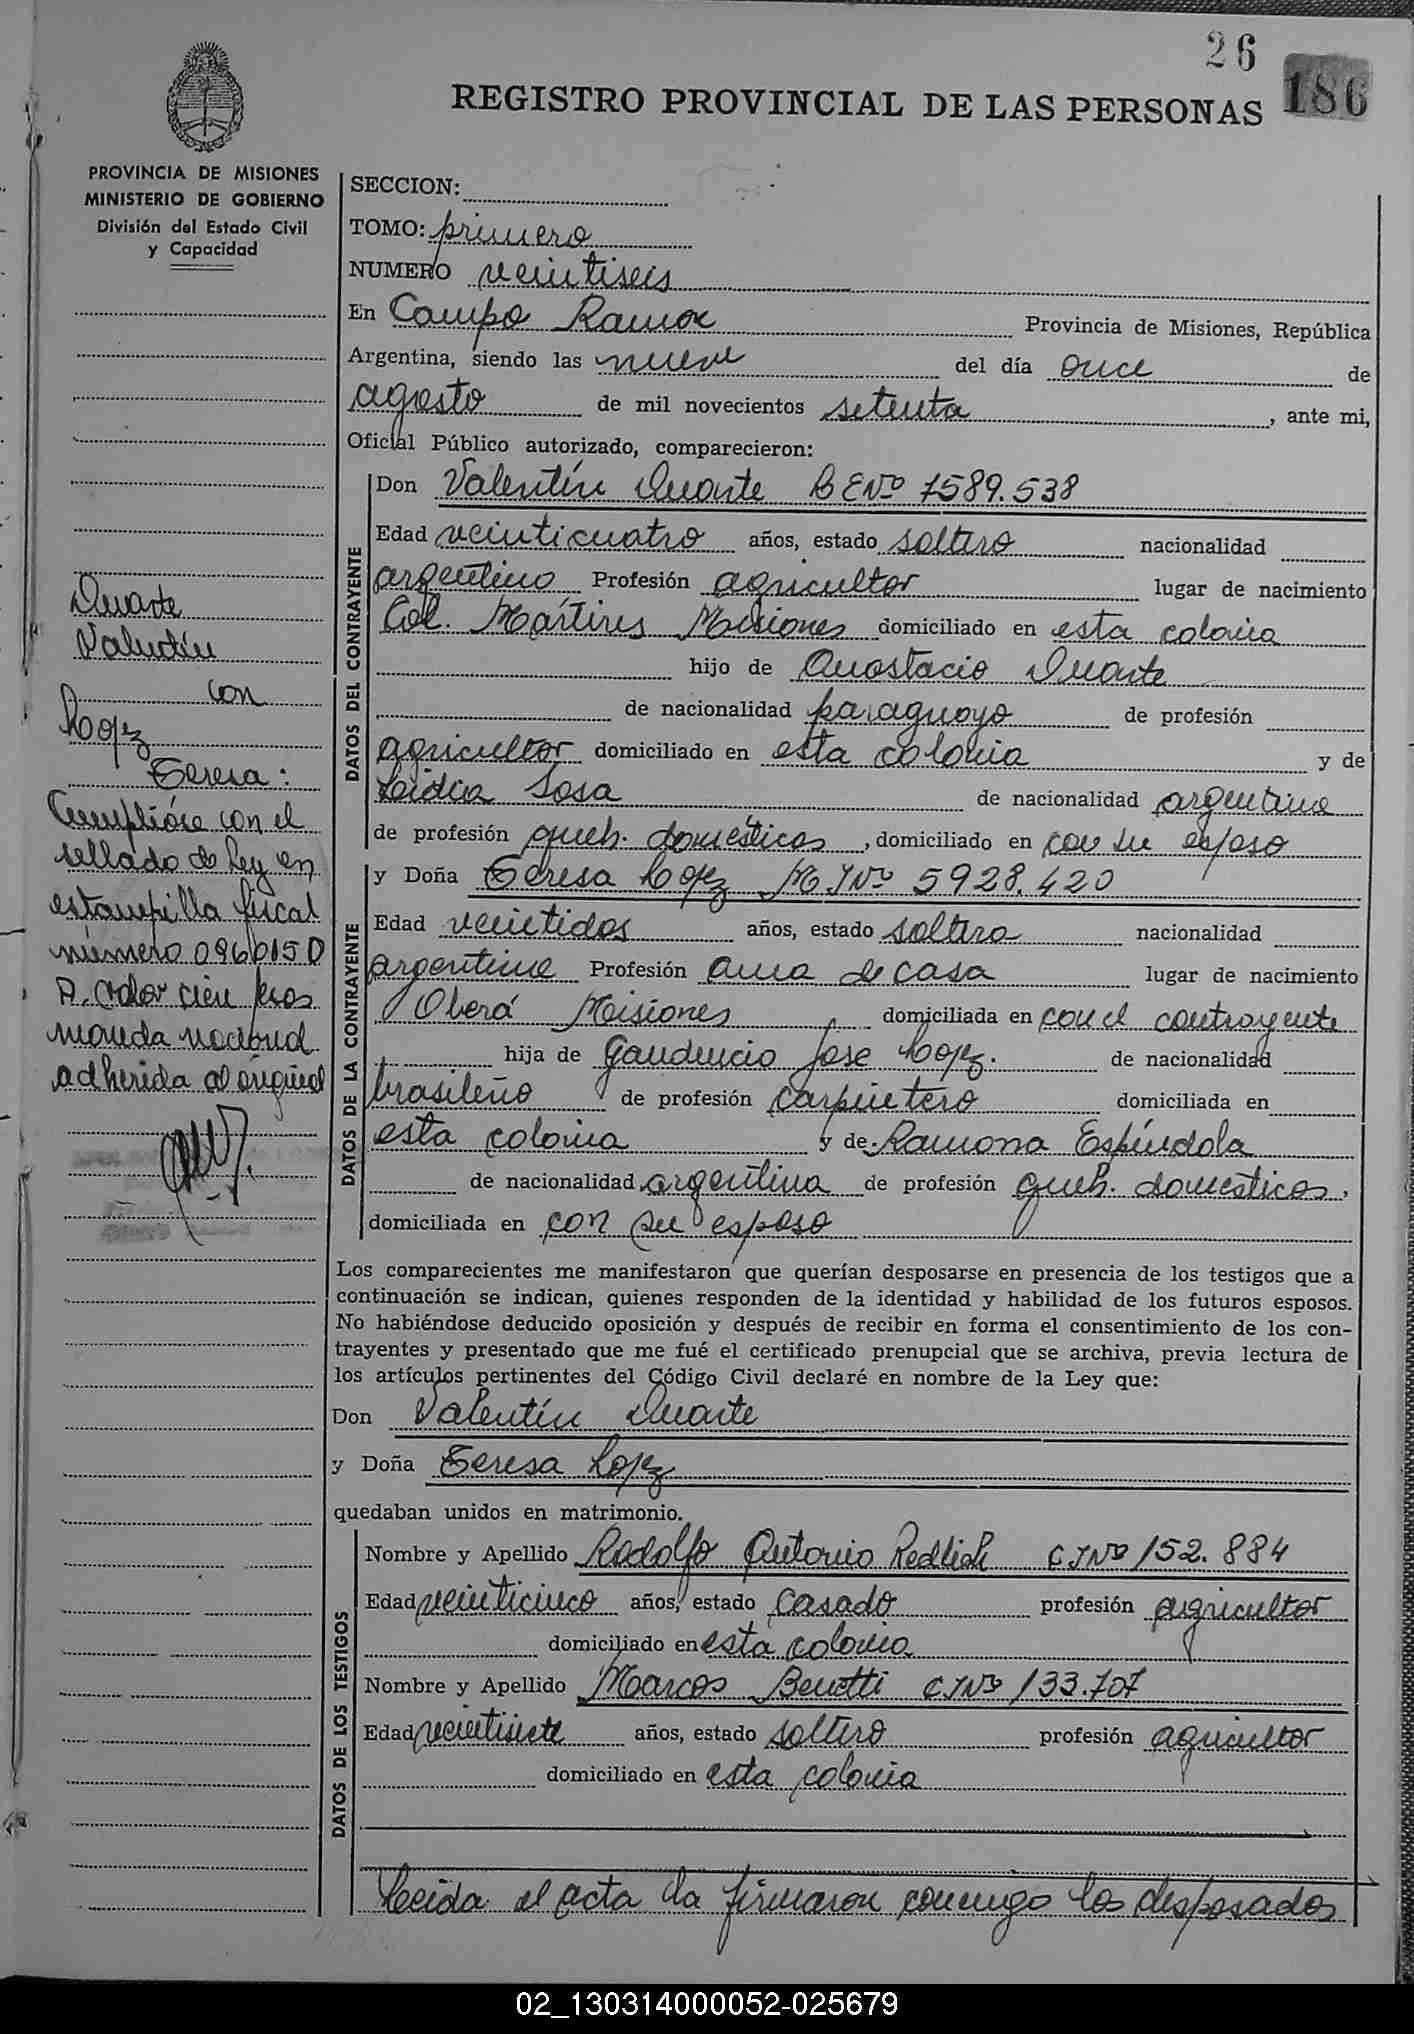 26
186
REGISTRO PROVINCIAL DE LAS PERSONAS
PROVINCIA DE MISIONES
MINISTERIO DE GOBIERNO
División del Estado Civil
y Capacidad
Duarte
Valentín
con
Lopez
Teresa:
Cumplióse con el
sellado de Ley en
estampilla fiscal
número 0960150
A. valor cien pesos
moneda nacional
adherida al original
SECCION:
TOMO: primero
NUMERO veintiseis
En Campo Ramon Provincia de Misiones, República
Argentina, siendo las nueve del día once de
agosto de mil novecientos setenta, ante mi,
Oficial Público autorizado, comparecieron:
DATOS DEL CONTRAYENTE
Don Valentín Duarte B ENº 7589.538
Edad veinticuatro años, estado soltero nacionalidad
argentino Profesión agricultor lugar de nacimiento
Col. Mártires Misiones domiciliado en esta colonia
hijo de Anastacio Duarte
de nacionalidad paraguayo de profesión
agricultor domiciliado en esta colonia y de
Leidia Sosa de nacionalidad argentina
de profesión queh. domésticos, domiciliado en con su esposo
DATOS DE LA CONTRAYENTE
y Doña Teresa Lopez M INº 5928.420
Edad veintidos años, estado soltera nacionalidad
argentina Profesión ama de casa lugar de nacimiento
Oberá Misiones domiciliada en con el contrayente
hija de Gaudencio Jose Lopez. de nacionalidad
brasileño de profesión carpintero domiciliada en
esta colonia y de Ramona Espíndola
de nacionalidad argentina de profesión queh. domesticos,
domiciliada en con su esposo
Los comparecientes me manifestaron que querían desposarse en presencia de los testigos que a
continuación se indican, quienes responden de la identidad y habilidad de los futuros esposos.
No habiéndose deducido oposición y después de recibir en forma el consentimiento de los con-
trayentes y presentado que me fué el certificado prenupcial que se archiva, previa lectura de
los artículos pertinentes del Código Civil declaré en nombre de la Ley que:
Don Valentín Duarte
y Doña Teresa Lopez
quedaban unidos en matrimonio.
DATOS DE LOS TESTIGOS
Nombre y Apellido Rodolfo Antonio Redlich CINº 152.884
Edad veinticinco años, estado casado profesión agricultor
domiciliado en esta colonia
Nombre y Apellido Marcos Benetti CINº 133.707
Edad veintisiete años, estado soltero profesión agricultor
domiciliado en esta colonia
Leida el acta la firmaron conmigo los desposados
02_130314000052-025679